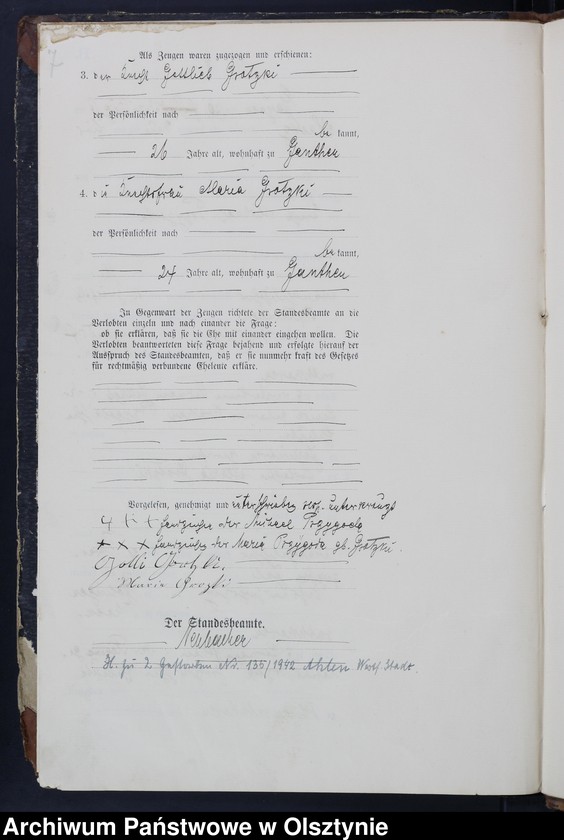 Als Zeugen waren zugezogen und erschienen:
3. der Knecht Gottlieb Grotzki
der Persönlichkeit nach
be kannt,
26 Jahre alt, wohnhaft zu Ganthen
4. die Knechtsfrau Maria Grotzki
der Persönlichkeit nach
be kannt,
24 Jahre alt, wohnhaft zu Ganthen
In Gegenwart der Zeugen richtete der Standesbeamte an die
Verlobten einzeln und nach einander die Frage:
ob sie erklären, daß sie die Ehe mit einander eingehen wollen. Die
Verlobten beantworteten diese Frage bejahend und erfolgte hierauf der
Ausspruch des Standesbeamten, daß er sie nunmehr kraft des Gesetzes
für rechtmäßig verbundene Eheleute erkläre.
Vorgelesen, genehmigt und unterschrieben resp. unterkreuzt
+ + + Handzeichen der Michael Przygoda
+ + + Handzeichen der Maria Przygoda gb. Grotzki.
Maria
Der Standesbeamte.
2 Nr. 135/1942 Akten Stadt.
Archiwum Państwowe w Olsztynie